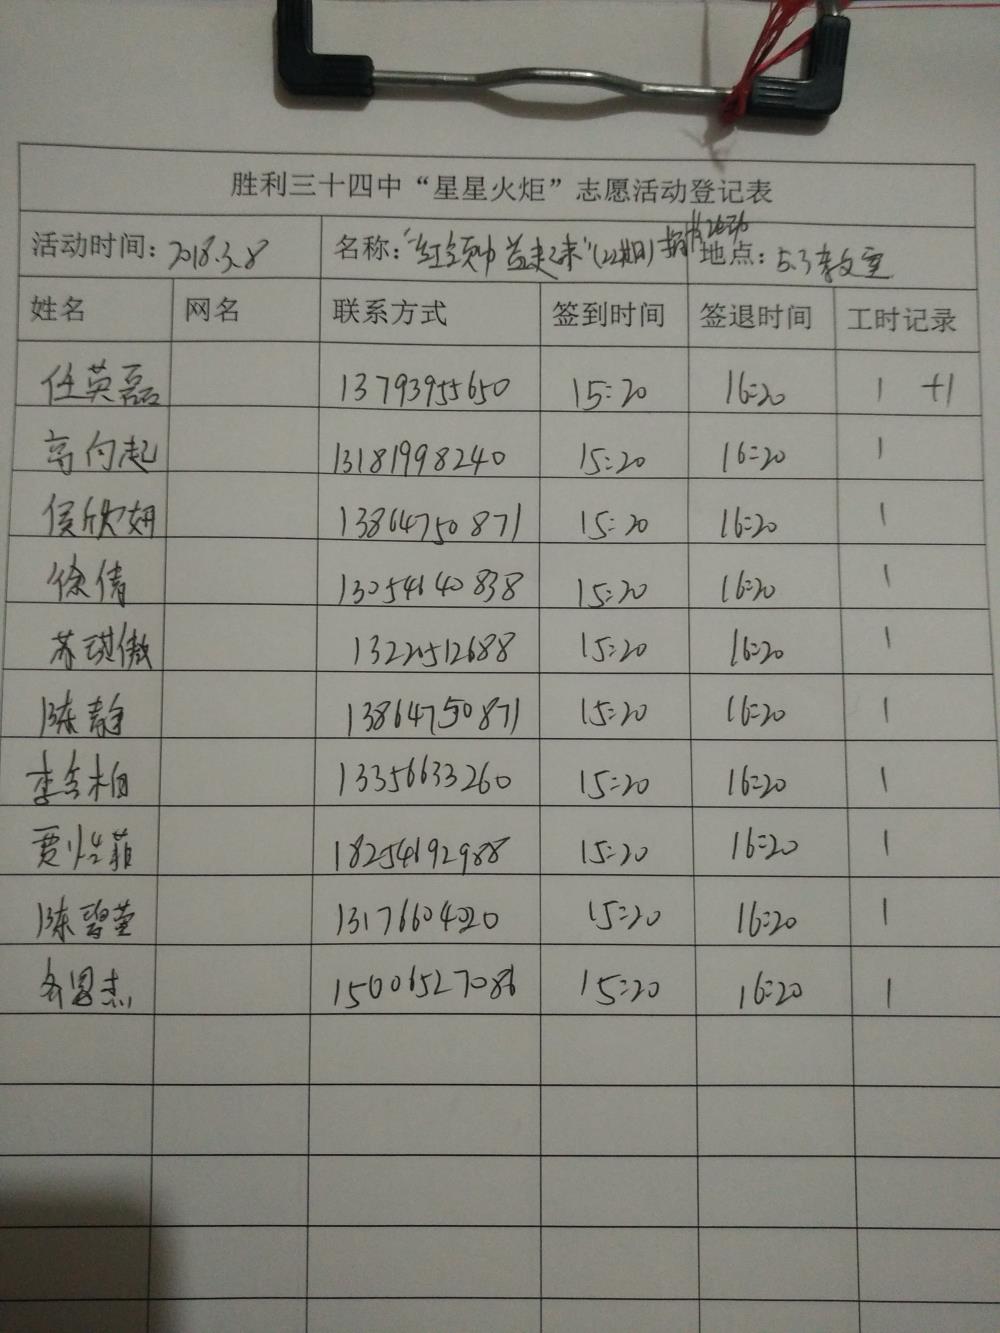 胜利三十四中“星星火炬”志愿活动登记表
活动时间：2018.3.8 名称：“红领巾 益起来”(22期) 捐书活动 地点：5.3教室
姓名 网名 联系方式 签到时间 签退时间 工时记录
任英磊 13793955650 15:20 16:20 1 +1
高付起 13181998240 15:20 16:20 1
侯欣妍 13864750871 15:20 16:20 1
徐倩 13054640838 15:20 16:20 1
苏琪傲 13220512688 15:20 16:20 1
陈静 13864750871 15:20 16:20 1
李会柏 13356633260 15:20 16:20 1
贾怡菲 18254692988 15:20 16:20 1
陈碧莹 13176604020 15:20 16:20 1
杰 15006527086 15:20 16:20 1